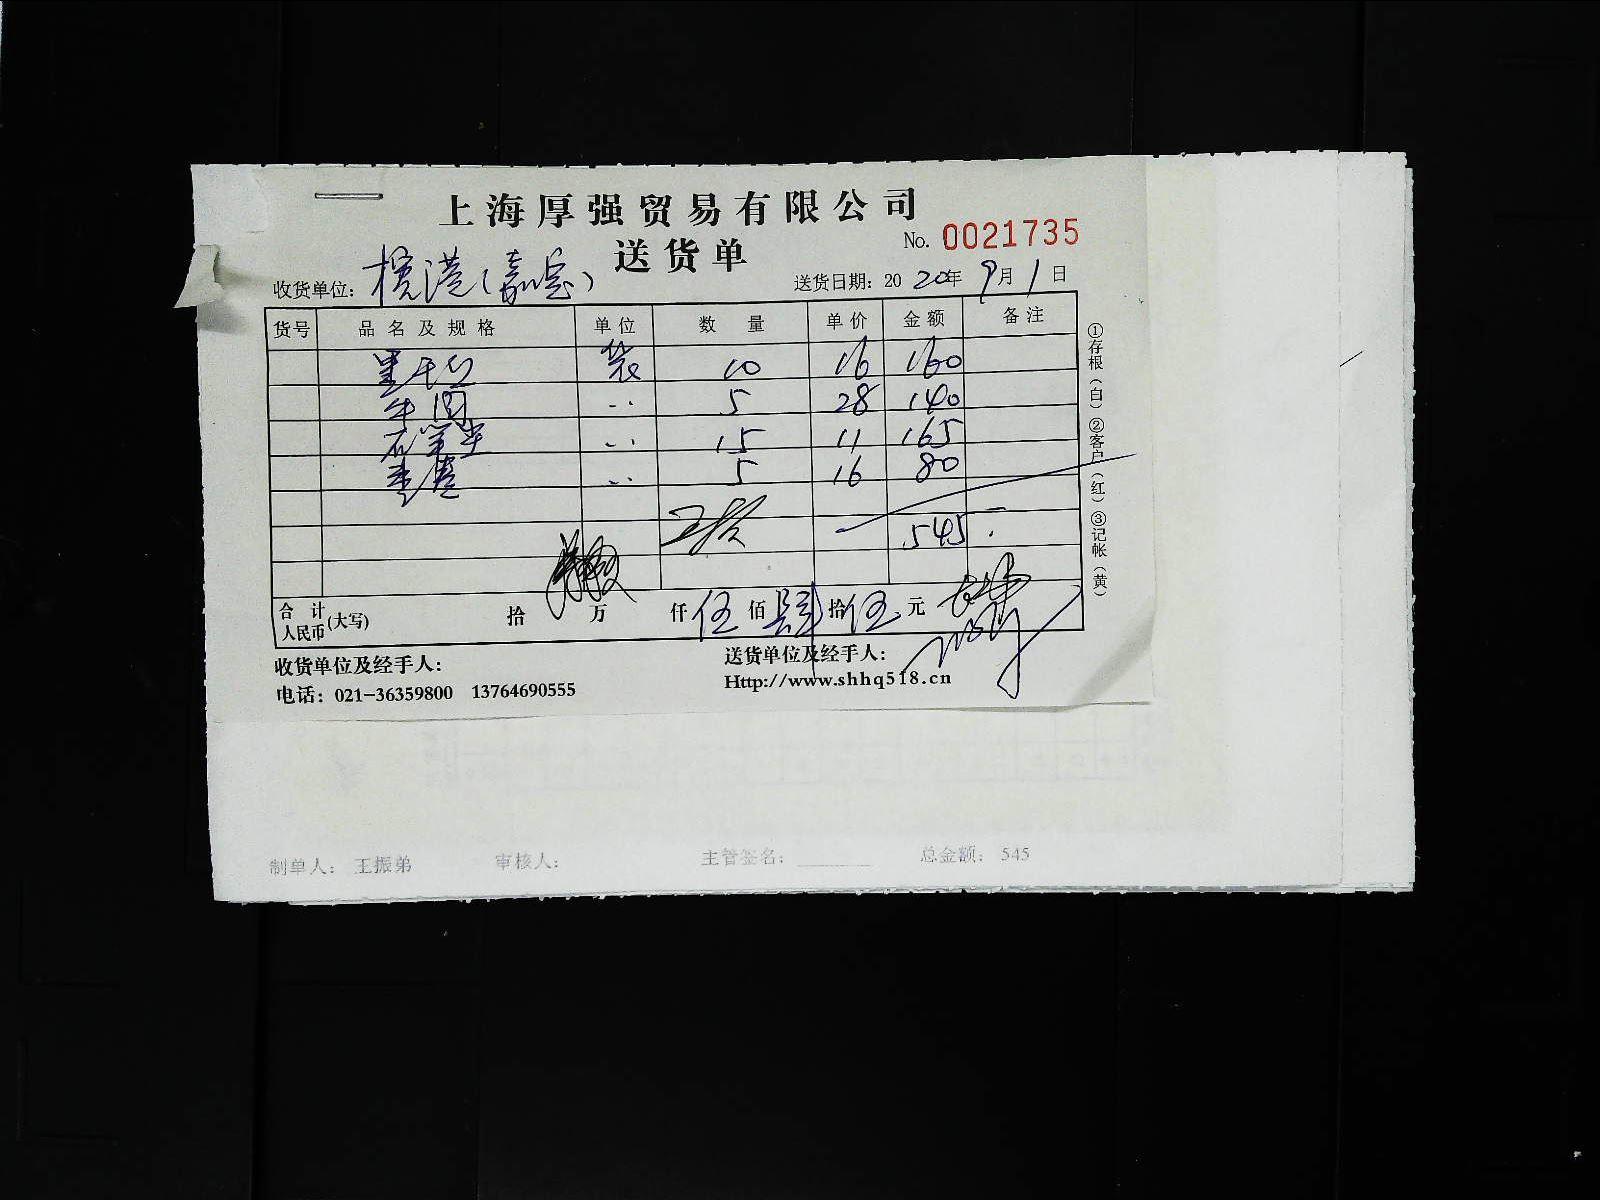 上海厚强贸易有限公司
送货单
No. 0021735
收货单位： 港(嘉定)
送货日期：2020年9月1日
货号 品名及规格 单位 数量 单价 金额 备注
袋 10 16 160
牛肉 〃 5 28 140
〃 15 11 165
〃 5 16 80
545
合计人民币(大写) 拾 万 仟 伍佰肆拾伍元
收货单位及经手人：
送货单位及经手人：
电话：021-36359800 13764690555
Http://www.shhq518.cn
①存根（白）②客户（红）③记帐（黄）
制单人： 王振弟 审核人： 主管签名： 总金额： 545